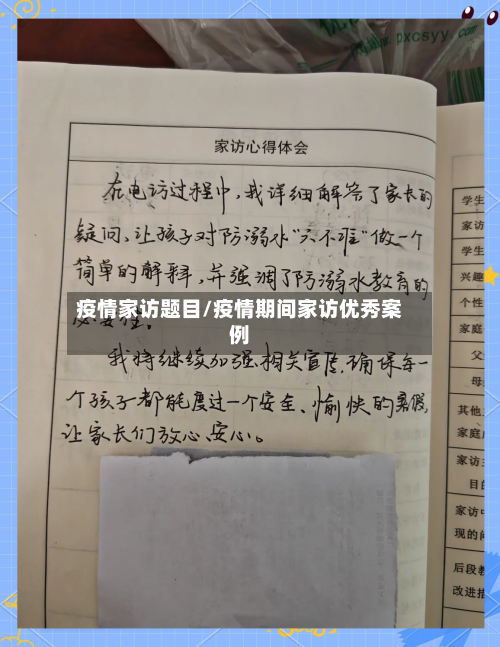 pxcsyy.com
家访心得体会
在电访过程中,我详细解答了家长的
疑问,让孩子对防溺水"六不准"做一个
简单的解释,并强调了防溺水教育的
必要性。
疫情家访题目/疫情期间家访优秀案
例
我将继续加强相关宣传,确保每一
个孩子都能度过一个安全、愉快的暑假,
让家长们放心、安心。
学生
家访
学生
兴趣
个性
家庭
父
母
其他
家庭
家访
目的
家访中
现的问
后段教
改进措